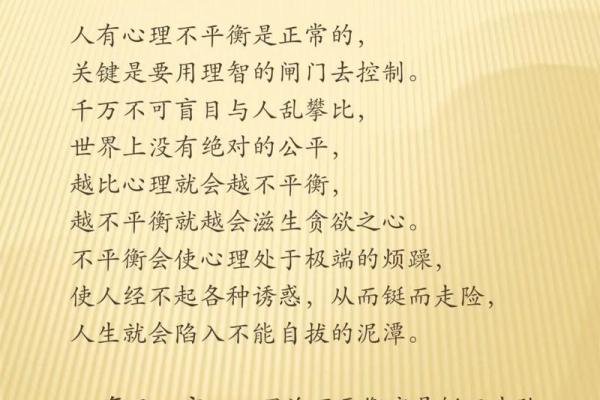 人有心理不平衡是正常的，
关键是要用理智的闸门去控制。
千万不可盲目与人乱攀比，
世界上没有绝对的公平，
越比心理就会越不平衡，
越不平衡就越会滋生贪欲之心。
不平衡会使心理处于极端的烦躁，
使人经不起各种诱惑，从而铤而走险，
人生就会陷入不能自拔的泥潭。